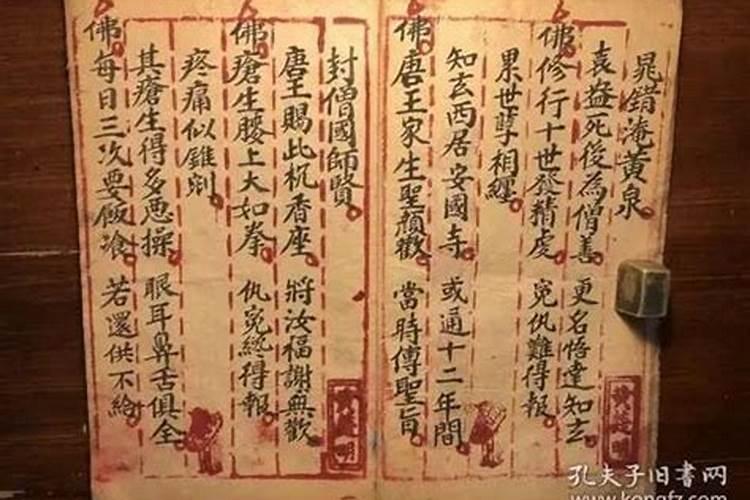 晁錯淹黃泉
袁盎死後為僧善 更名悟達知玄
佛修行十世發精虔 冤仇難得報
累世孽相纏
知玄西居安國寺 或通十二年間
佛唐王家生聖顏歡 當時傳聖旨
封僧國師賢
唐王賜此香座 將汝福謝無歡
佛瘡生腰上大如拳 仇冤終得報
疼痛似錐剜
其瘡生得多惡操 眼耳鼻舌俱全
佛每日三次要飯飡 若還供不給
孔夫子旧书网